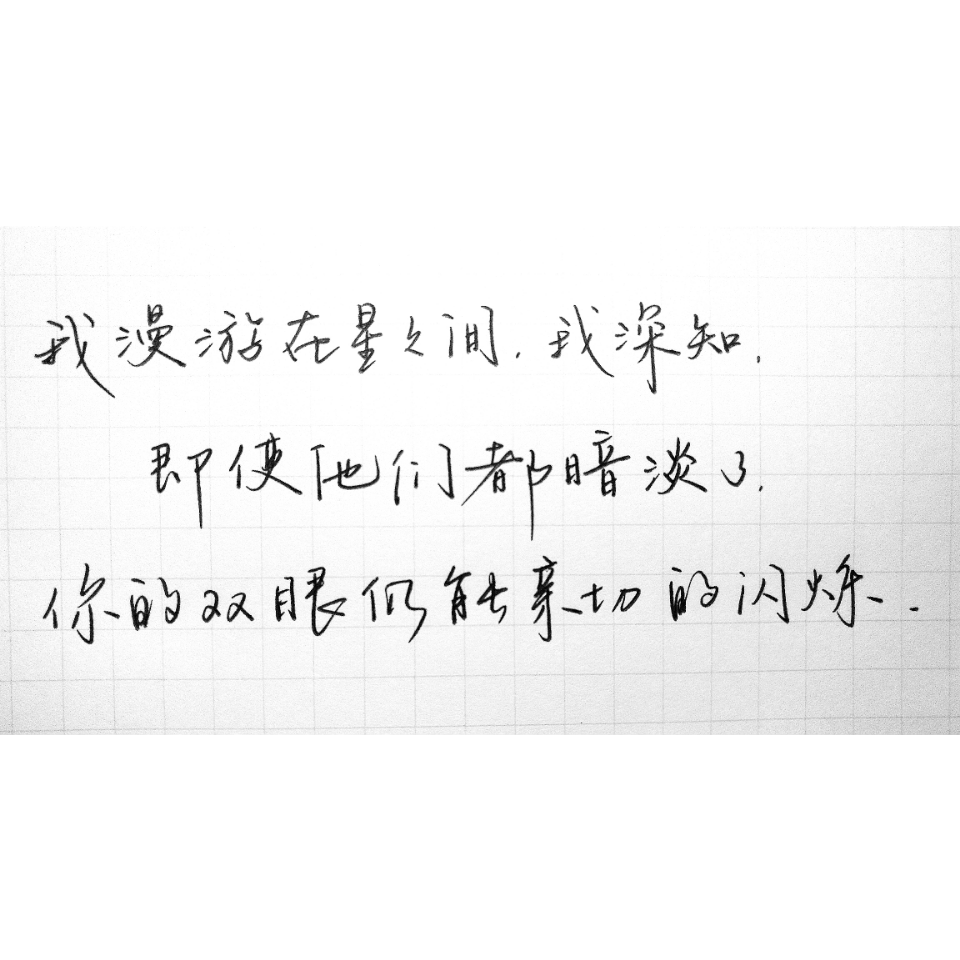 我漫游在星之间，我深知，
即使他们都暗淡了，
你的双眼仍能亲切的闪烁．